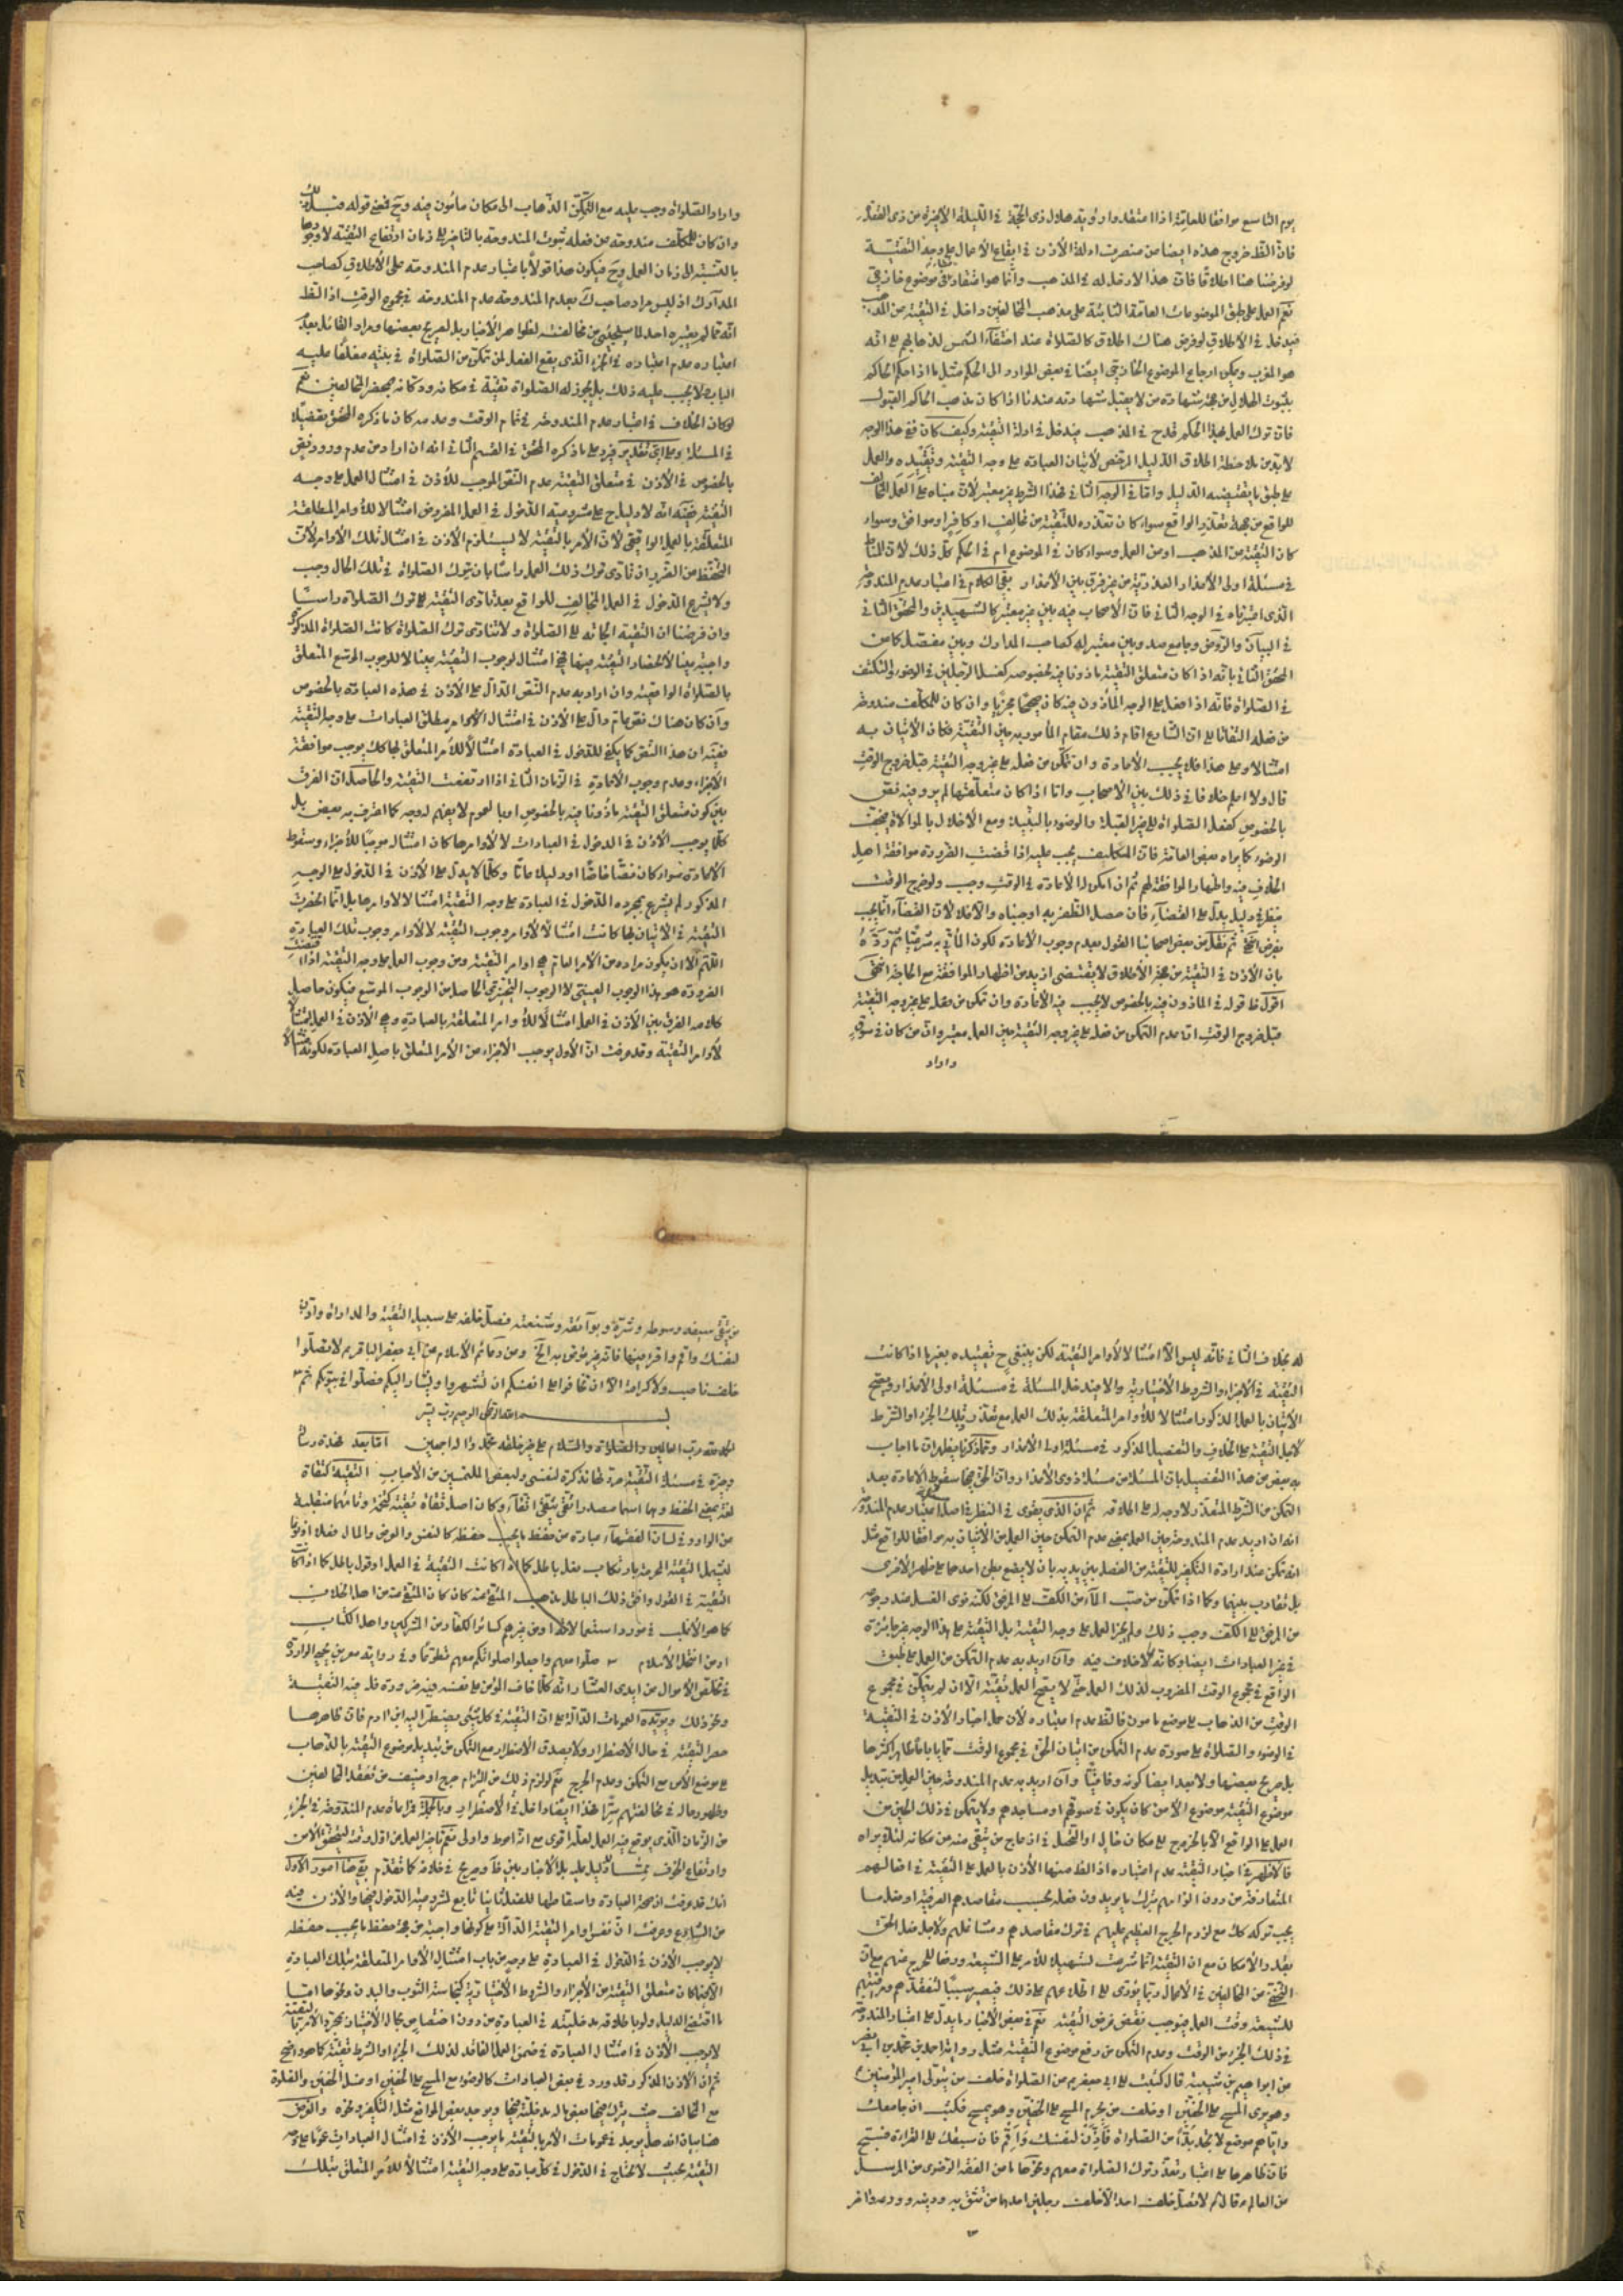 يوم التاسع موافقا للعامة اذا اعتقدوا رؤيته هلال ذى الحجة فى الليلة الأخيرة من ذى القعدة
فان الظ خروج هذه ايضا من منصرف ادلة الأذن فى ايقاع الأعمال على وجه التقية
لو فرضنا هنا اطلاقا فان هذا لا دخل له فى المذهب وانما هو اعتقاد فى موضوع خارجى
نعم العمل على طبق الموضوعات العامة الثابتة على مذهب المخالفين داخل فى التقية من المذهب
فيدخل فى الأطلاق لو فرض هناك اطلاق كالصلوة عند اختفاء الشمس لذهابهم على انه
هو المغرب ويمكن ارجاع الموضوع الخارجى ايضا فى بعض الموارد الى الحكم مثل ما اذا حكم الحاكم
بثبوت الهلال من جهة شهادة من لا يقبل شهادته عندنا اذا كان مذهب الحاكم القبول
فان ترك العمل بهذا الحكم قدح فى المذهب فيدخل فى ادلة التقية وكيف كان ففى هذا الوجه
لا بد من ملاحظة اطلاق الدليل المرخص لأتيان العبادة على وجه التقية وتقييده والعمل
على طبق ما يقتضيه الدليل واما فى الوجه الثانى فهذا الشرط غير معتبر لأن مبناه على العمل المخالف
للواقع من جهة تعذر الواقع سواء كان تعذره للتقية من مخالف او كافر او موافق وسواء
كان التقية من المذهب او من العمل وسواء كان فى الموضوع ام فى الحكم كل ذلك لأن المناط
فى مسئلة اولى الأعذار العذرية من غير فرق بين الأعذار بقى الكلام فى اعتبار عدم المندوحة
الذى اعتبرناه فى الوجه الثانى فان الأصحاب فيه بين غير معتبر كالشهيدين والمحقق الثانى
فى البيان والروض وجامع صد وبين معتبر له كصاحب المدارك وبين مفصل كما عن
المحقق الثانى بانه اذا كان متعلق التقية مأذونا فيه بخصوصه كغسل الرجلين فى الوضوء والتكتف
فى الصلواة فانه اذا فعل على الوجه المأذون فيه كان صحيحا مجزيا وان كان للمكلف مندوحة
من فعله التفاتا على ان الشارع اقام ذلك مقام المأمور به حين التقية فكان الأتيان به
امتثالا وعلى هذا فلا يجب الأعادة وان تمكن من فعله على غير وجه التقية قبل خروج الوقت
قال ولا اعلم خلافا فى ذلك بين الأصحاب واما اذا كان متعلقها لم يرد فيه نص
بالخصوص كفعل الصلواة لغير القبلة والوضوء بالنبيذ ومع الأخلال بالموالاة فيجف
الوضوء كما يراه بعض العامة فان المكلف يجب عليه اذا قضت الضرورة موافقة اهل
الخلاف فيه واظهار الموافقة لهم ثم ان امكن له الأعادة فى الوقت وجب ولو خرج الوقت
ينظر فى دليل يدل على القضاء فان حصل الظفر به اوجبناه والا فلا لأن القضاء انما يجب
بفرض جديد ثم نقل عن بعض اصحابنا القول بعدم وجوب الأعادة لكون المأتى به شرعيا ثم رده
بان الأذن فى التقية من جهة الأطلاق لا يقتضى ازيد من اظهار الموافقة مع الحاجة انتهى
اقول ظ قوله فى المأذون فيه بالخصوص لا يجب فيه الأعادة وان تمكن من فعله على غير وجه التقية
قبل خروج الوقت ان عدم التمكن من فعله على غير وجه التقية حين العمل معتبر وان من كان فى سوقهم
واراد
واراد الصلواة وجب عليه مع التمكن الذهاب الى مكان مأمون فيه وح فمعنى قوله قبل ذلك
وان كان للمكلف مندوحة من فعله ثبوت المندوحة بالتأخير الى زمان ارتفاع التقية لا وجودها
بالنسبة الى زمان العمل وح فيكون هذا قولا باعتبار عدم المندوحة على الأطلاق كصاحب
المدارك اذ ليس مراد صاحب ك بعدم المندوحة عدم المندوحة فى مجموع الوقت اذا الظ
انه مما لم يعتبره احد لما سيجيئ من مخالفته لظواهر الأخبار بل لصريح بعضها ومراد القائل بعدم
اعتباره عدم اعتباره فى الجزء الذى يقع الفعل لمن تمكن من الصلواة فى بيته مغلقا عليه
الباب لا يجب عليه ذلك بل يجوز له الصلواة تقية فى مكانه ودكانه بمحضر المخالفين نعم
لو كان الخلاف فى اعتبار عدم المندوحة فى تمام الوقت وعدمه كان ما ذكره المحقق تفصيلا
فى المسئلة وعلى اى تقدير فيرد على ما ذكره المحقق فى القسم الثانى انه ان اراد من عدم ورود نص
بالخصوص فى الأذن فى متعلق التقية عدم النص الموجب للأذن فى امتثال العمل على وجه
التقية ففيه انه لا دليل ح على مشروعية الدخول فى العمل المفروض امتثالا للأوامر المطلقة
المتعلقة بالعمل الواقعى لأن الأمر بالتقية لا يستلزم الأذن فى امتثال تلك الأوامر لأن
التحفظ عن الضرر ان تأدى بترك ذلك العمل راسا بان يترك الصلواة فى تلك الحال وجب
ولا يشرع الدخول فى العمل المخالف للواقع بعد تأدى التقية بترك الصلواة راسا
وان فرضنا ان التقية الجأته الى الصلواة ولا يتأدى بترك الصلواة كانت الصلواة المذكورة
واجبة عينا لأنحصار التقية فيها فهى امتثال لوجوب التقية عينا لا للوجوب الموسع المتعلق
بالصلواة الواقعية وان اراد به عدم النص الدال على الأذن فى هذه العبادة بالخصوص
وان كان هناك نص عام دال على الأذن فى امتثال الأوامر بمطلق العبادات على وجه التقية
ففيه ان هذا النص كما يكفى للدخول فى العبادة امتثالا للأمر المتعلق بها كك يوجب موافقته
الأجزاء وعدم وجوب الأعادة فى الزمان الثانى اذا ارتفعت التقية والحاصل ان الفرق
بين كون متعلق التقية مأذونا فيه بالخصوص او بالعموم لا يفهم له وجه كما اعترف به بعض بل
كلما يوجب الأذن فى الدخول فى العبادات لأوامرها كان امتثاله موجبا للأجزاء وسقوط
الأعادة سواء كان نصا خاصا او دليلا عاما وكلما لا يدل على الأذن فى الدخول على الوجه
المذكور لم يشرع بمجرده الدخول فى العبادة على وجه التقية امتثالا لأوامرها بل ان انحصرت
التقية فى الأتيان بها كانت امتثالا لأوامر وجوب التقية لا لأوامر وجوب تلك العبادة
اللهم الا ان يكون مراده من الأمر العام هى اوامر التقية ومن وجوب العمل على وجه التقية اذا اقتضت
الضرورة هو بهذا الوجوب العينى لا الوجوب التخييرى الحاصل من الوجوب الموسع فيكون حاصل
كلامه الفرق بين الأذن فى العمل امتثالا للأوامر المتعلقة بالعبادة وبين الأذن فى العمل امتثالا
لأوامر التقية وقد عرفت ان الأول يوجب الأجزاء من الأمر المتعلق باصل العبادة لكونه امتثالا
له بخلاف الثانى فانه ليس الا امتثالا لأوامر التقية لكن ينبغى ح تقييده بغير ما اذا كانت
التقية فى الأجزاء والشروط الأختيارية والا فيدخل المسئلة فى مسئلة اولى الأعذار ويصح
الأتيان بالعمل المذكور امتثالا للأوامر المتعلقة بذلك العمل مع تعذر تلك الجزء او الشرط
لأجل التقية على الخلاف والتفصيل المذكور فى مسئلة اولى الأعذار ومما ذكرنا يظهر ان ما اجاب
به بعض عن هذا التفصيل بان المسئلة من مسئلة ذوى الأعذار وان الحق فيها سقوط الأعادة بعد
التمكن من الشرط المتعذر لا وجه له على اطلاقه ثم ان الذى يقوى فى النظر فى اصل اعتبار عدم المندوحة
انه ان اريد عدم المندوحة حين العمل بمعنى عدم التمكن حين العمل من الأتيان به موافقا للواقع مثل
انه تمكن عند ارادة التكفير للتقية من الفصل بين يديه بان لا يضع بطن احدهما على ظهر الأخرى
بل يقارب بينهما وكما اذا تمكن من صب الماء من الكف الى المرفق لكنه ينوى الغسل عند رجوعه
من المرفق الى الكف وجب ذلك ولم يجز العمل على وجه التقية بل التقية على هذا الوجه غير جايزة
فى غير العبادات ايضا وكانه لا خلاف فيه وان اريد به عدم التمكن من العمل على طبق
الواقع فى مجموع الوقت المضروب لذلك العمل حتى لا يصح العمل تقية الا ان لم يتمكن فى مجموع
الوقت من الذهاب الى موضع مأمون فالظ عدم اعتباره لأن حمل اخبار الأذن فى التقية
فى الوضوء والصلواة على صورة عدم التمكن من اتيان الحق فى مجموع الوقت مما يأباه ظاهر اكثرها
بل صريح بعضها ولا يبعد ايضا كونه وفاقيا وان اريد به عدم المندوحة حين العمل من تبديل
موضوع التقية بموضوع الأمن كان يكون فى سوقهم او مساجدهم ولا يتمكن فى ذلك الحين من
العمل على الواقع الا بالخروج الى مكان خال او التحيل فى ازعاج من يتقى منه من مكانه لئلا يراه
فالأظهر فى اخبار التقية عدم اعتباره اذ الظ منها الأذن بالعمل على التقية فى افعالهم
المتعارفة من دون الزامهم بترك ما يريدون فعله بحسب مقاصدهم العرفية او فعل ما
يجب تركه كك مع لزوم الحرج العظيم عليهم فى ترك مقاصدهم ومشاغلهم ولأجل فعل الحق
بقدر الأمكان مع ان التقية انما شرعت تسهيلا للأمر على الشيعة ورفعا للحرج عنهم مع ان
التخفى عن المخالفين فى الأعمال ربما يؤدى الى اطلاعهم على ذلك فيصير سببا لتفقدهم ومراقبتهم
للشيعة وقت العمل فيوجب نقض غرض التقية نعم فى بعض الأخبار ما يدل على اعتبار المندوحة
فى ذلك الجزء من الوقت وعدم التمكن من رفع موضوع التقية مثل رواية احمد بن محمد بن ابى نصر
عن ابراهيم بن شيبة قال كتبت الى ابى جعفر عن الصلواة خلف من يتولى امير المؤمنين
وهو يرى المسح على الخفين او خلف من يحرم المسح على الخفين وهو يمسح فكتب ان جامعك
واياهم موضع لا تجد بدا من الصلواة فاذن لنفسك واقم فان سبقك الى القراءة فسبح
فان ظاهرها اعتبار تعذر ترك الصلواة معهم ونحوها ما عن الفقه الرضوى من المرسل
عن العالم قال ثم لا تصل خلف احد الا خلف رجلين احدهما من تثق به ودينه وورعه واخر
من يتقى سيفه وسوطه وشره وبوائقه وشنعته فصل خلفه على سبيل التقية والمداراة واذن
لنفسك واقم واقرء فيها فانه غير مؤتمن به الخ وعن دعائم الأسلام عن ابى جعفر الباقر لا تصلوا
خلف ناصب ولا كرامة الا ان تخافوا على انفسكم ان تشهروا ويشار اليكم فصلوا فى بيوتكم ثم
بسم الله الرحمن الرحيم
الحمد لله رب العالمين والصلواة والسلام على خير خلقه محمد واله اجمعين اما بعد فهذه رسالة
وجيزة فى مسئلة التقية حررتها تذكرة لنفسى ولبعض الملتمسين من الأحباب التقية كتقاة
لغة بمعنى الحفظ وهما اسما مصدر اتقى يتقى اتقاء وكان اصل تقاة تقية كتخمة وتائهما منقلبة
من الواو وفى لسان الفقهاء عبارة عن حفظ ما يجب حفظه كالنفس والعرض والمال فعلا او قولا
ليشمل التقية المحرمة بارتكاب فعل باطل كما اذا كانت التقية فى العمل او قول باطل كما اذا كانت
التقية فى القول وافق ذلك الباطل مذهب المتقى منه كان كان المتقى منه من اهل الخلاف
كما هو الأغلب فى مورد استعمالاتها او من غيرهم كسائر الكفار من المشركين واهل الكتاب
او من انتحل الأسلام صلوا معهم واجعلوا صلواتكم معهم تطوعا وفى رواية معمر بن يحيى الواردة
فى تخليص الأموال من ايدى العشار انه كلما خاف المؤمن على نفسه فيه ضرورة فله فيه التقية
ونحو ذلك ويؤيده العمومات الدالة على ان التقية فى كل شئ يضطر اليه ابن ادم فان ظاهرها
حصر التقية فى حال الأضطرار ولا يصدق الأضطرار مع التمكن من تبديل موضوع التقية بالذهاب
الى موضع الأمن مع التمكن وعدم الحرج نعم لو لزم ذلك من التزام حرج او ضيق من تفقد المخالفين
وظهور حاله فى مخالفتهم سرا فهذا ايضا داخل فى الأضطرار وبالجملة فمراعاة عدم المندوحة فى الجزء
من الزمان الذى يوقع فيه العمل لعله اقوى مع انه احوط واولى نعم تاخير العمل عن اول وقته لتحقق الأمن
وارتفاع الخوف مما لا دليل عليه بل الأخبار بين ظ وصريح فى خلافه كما تقدم بقى هنا امور الأول
انك قد عرفت ان صحة العبادة واسقاطها للفعل ثانيا تابع لمشروعية الدخول فيها والأذن فيه
من الشارع وعرفت ان نفس اوامر التقية الدالة على كونها واجبة من جهة حفظ ما يجب حفظه
لا يوجب الأذن فى الدخول فى العبادة على وجه من باب امتثال الأوامر المتعلقة بتلك العبادة
الا فيما كان متعلق التقية من الأجزاء والشروط الأختيارية كنجاسة الثوب والبدن ونحوها اما
ما اقتضى الدليل ولو باطلاقه مدخليته فى العبادة من دون اختصاص بحال الأختيار فمجرد الأمر بالتقية
لا يوجب الأذن فى امتثال العبادة فى ضمن العمل الفاقد لذلك الجزء او الشرط تقية كما هو واضح
ثم ان الأذن المذكور قد ورد فى بعض العبادات كالوضوء مع المسح على الخفين او غسل الخفين والصلواة
مع المخالف حيث يترك فيها بعض ماله مدخلية فيها ويوجد بعض الموانع مثل التكفير ونحوه والغرض
هنا بيان انه هل يوجد فى عمومات الأمر بالتقية ما يوجب الأذن فى امتثال العبادات عموما على وجه
التقية بحيث لا نحتاج فى الدخول فى كل عبادة على وجه التقية امتثالا للأمر المتعلق بتلك